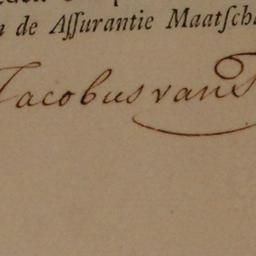 de Aſſurantie Maatſch
Jacobus van